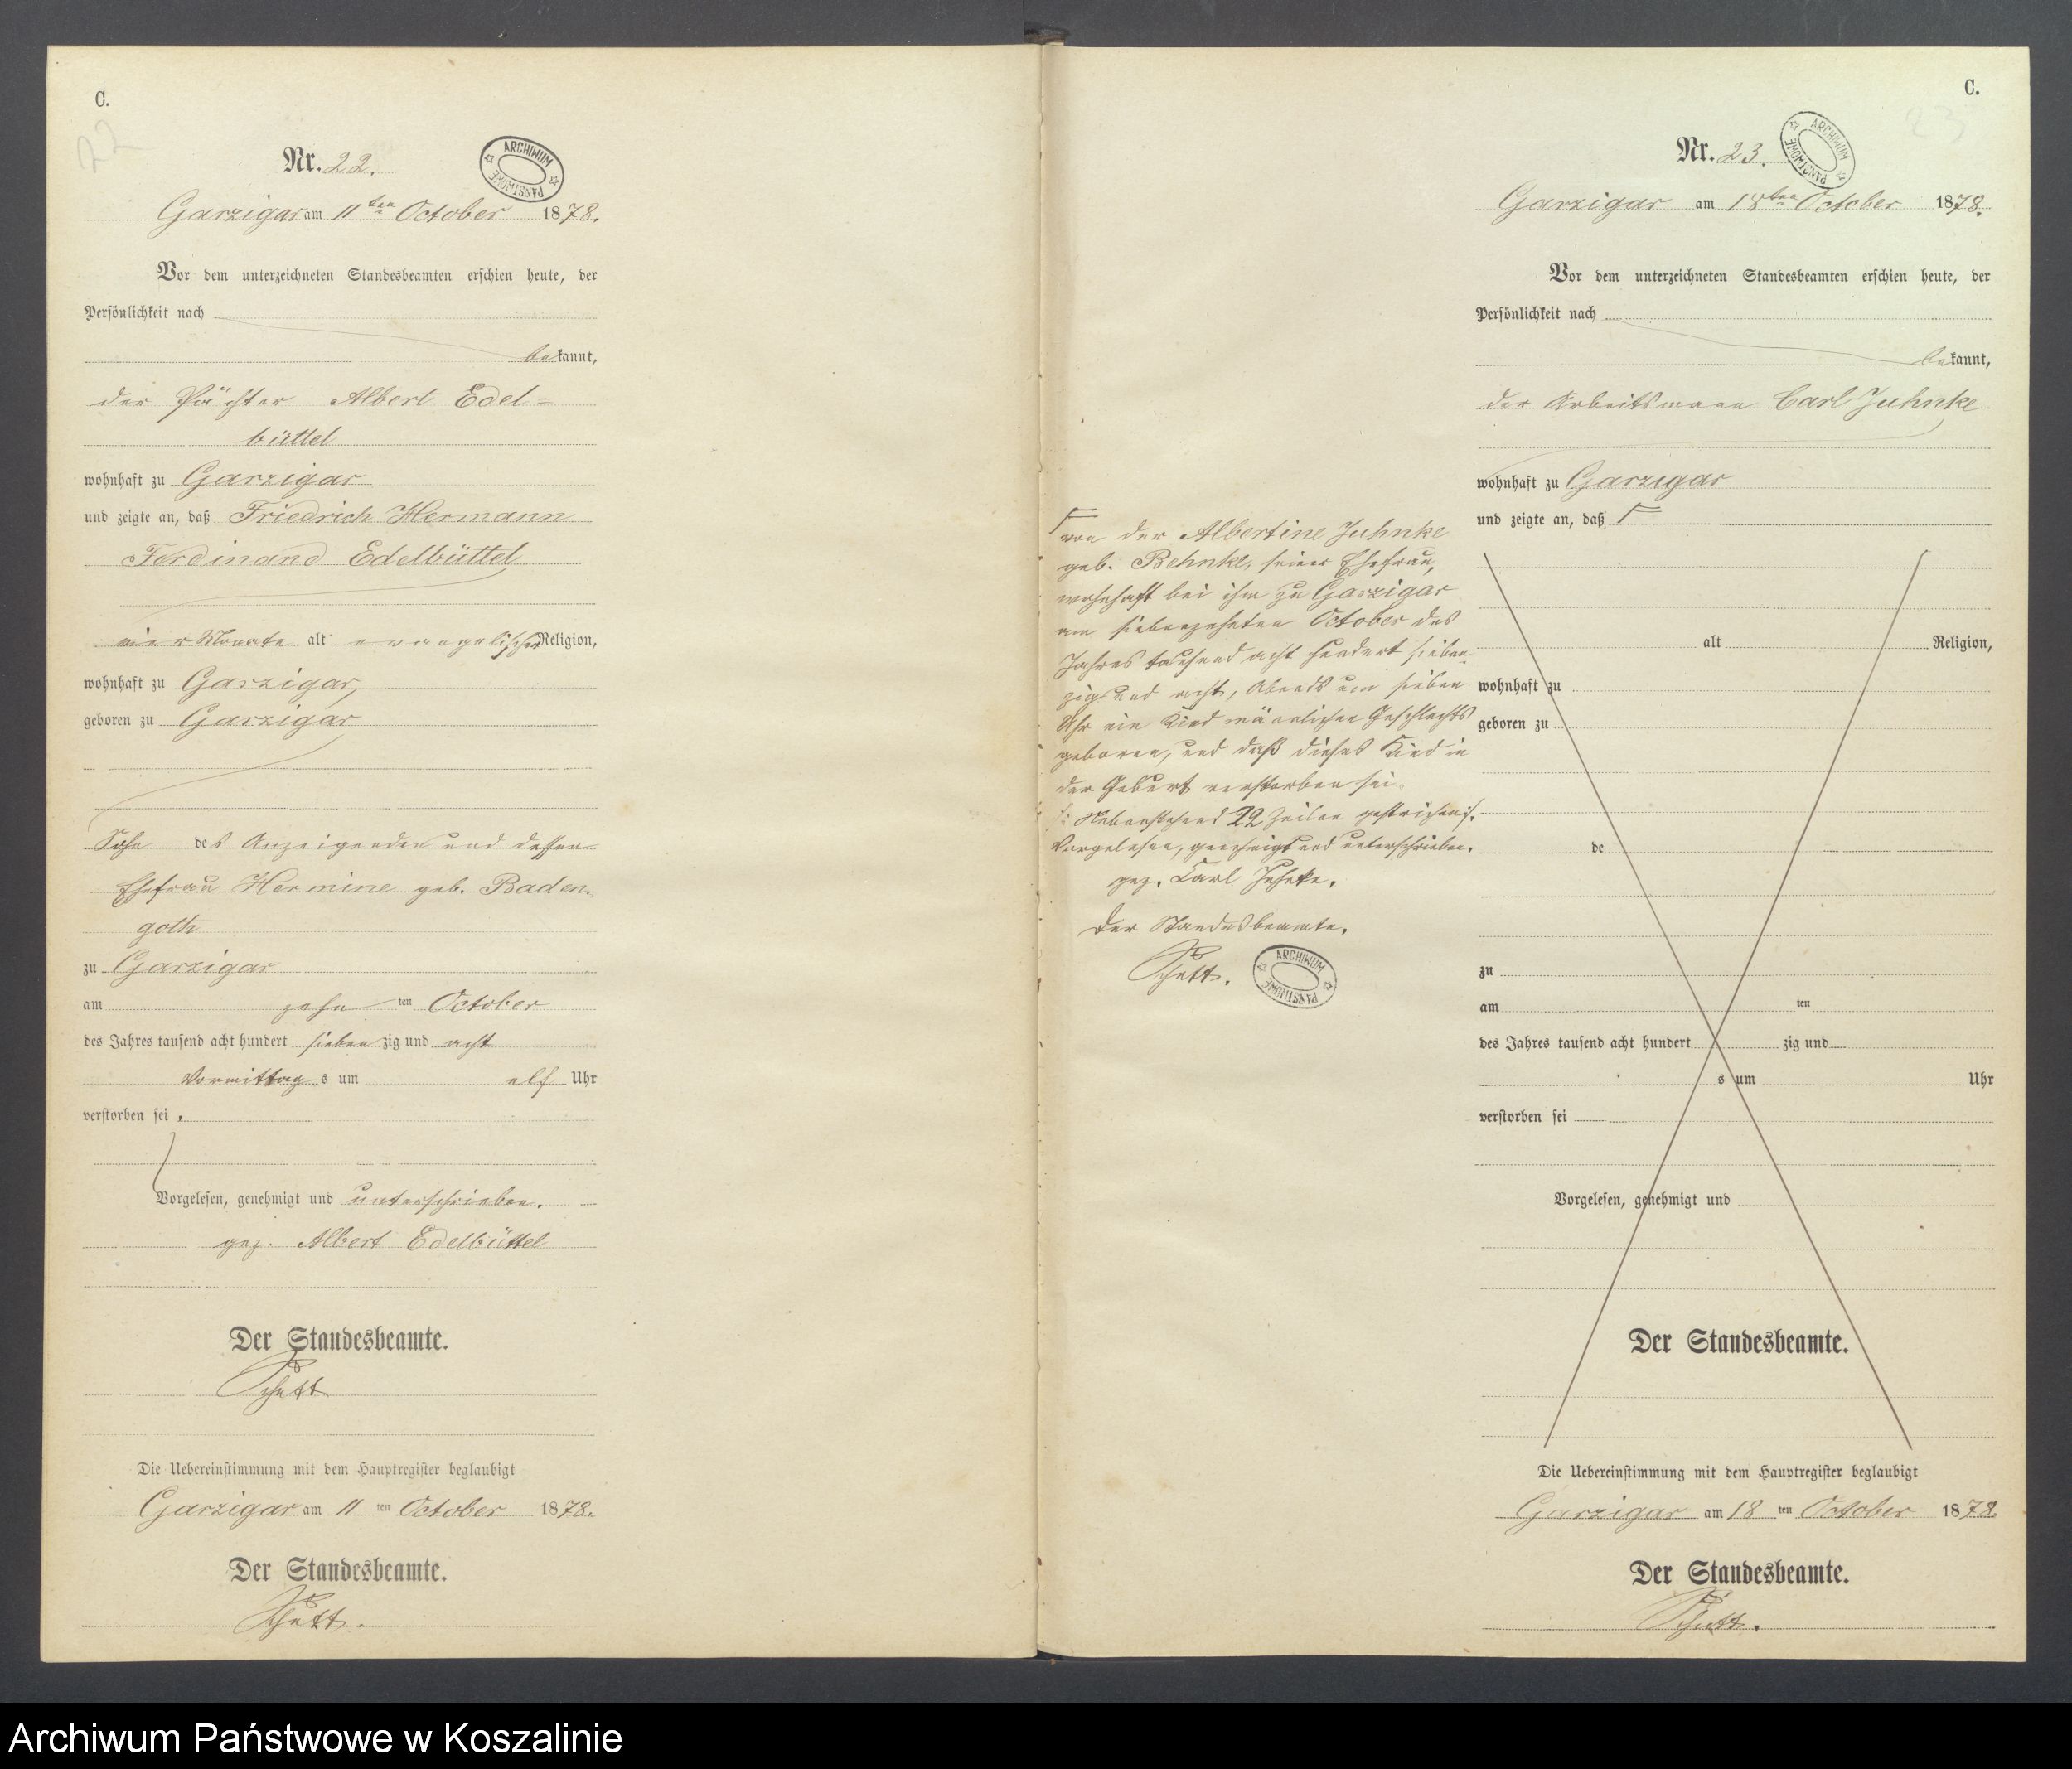 C.
22
Nr. 22.
ARCHIWUM PAŃSTWOWE
Garzigar am 11ten October 1878.
Vor dem unterzeichneten Standesbeamten erschien heute, der
Persönlichkeit nach
bekannt,
der Pächter Albert Edel=
büttel
wohnhaft zu Garzigar
und zeigte an, daß Friedrich Hermann
Ferdinand Edelbüttel
vier Monate alt evangelischer Religion,
wohnhaft zu Garzigar,
geboren zu Garzigar
Sohn des Anzeigenden und dessen
Ehefrau Hermine geb. Baden-
goth
zu Garzigar
am zehn ten October
des Jahres tausend acht hundert sieben zig und acht
Vormittag s um elf Uhr
verstorben sei.
Vorgelesen, genehmigt und unterschrieben.
gez. Albert Edelbüttel
Der Standesbeamte.
Die Uebereinstimmung mit dem Hauptregister beglaubigt
Garzigar am 11 ten October 1878.
Der Standesbeamte.
C.
23
Nr. 23.
ARCHIWUM PAŃSTWOWE
Garzigar am 18ten October 1878.
Vor dem unterzeichneten Standesbeamten erschien heute, der
Persönlichkeit nach
bekannt,
der Arbeitsmann Carl Juhnke
wohnhaft zu Garzigar
und zeigte an, daß
von der Albertine Juhnke
geb. Behnke, seiner Ehefrau,
wohnhaft bei ihm zu Garzigar
am siebenzehnten October des
Jahres tausend acht hundert sieben-
zig und acht, Abends um sieben
Uhr ein Kind männlichen Geschlechts
geboren, und daß dieses Kind in
der Geburt verstorben sei.
Nebenstehend 22 Zeilen gestrichen.
Vorgelesen, genehmigt und unterschrieben.
gez. Carl Juhnke.
Der Standesbeamte.
ARCHIWUM PAŃSTWOWE
alt Religion,
wohnhaft zu
geboren zu
de
zu
am ten
des Jahres tausend acht hundert zig und
s um Uhr
verstorben sei
Vorgelesen, genehmigt und
Der Standesbeamte.
Die Uebereinstimmung mit dem Hauptregister beglaubigt
Garzigar am 18 ten October 1878
Der Standesbeamte.
Archiwum Państwowe w Koszalinie